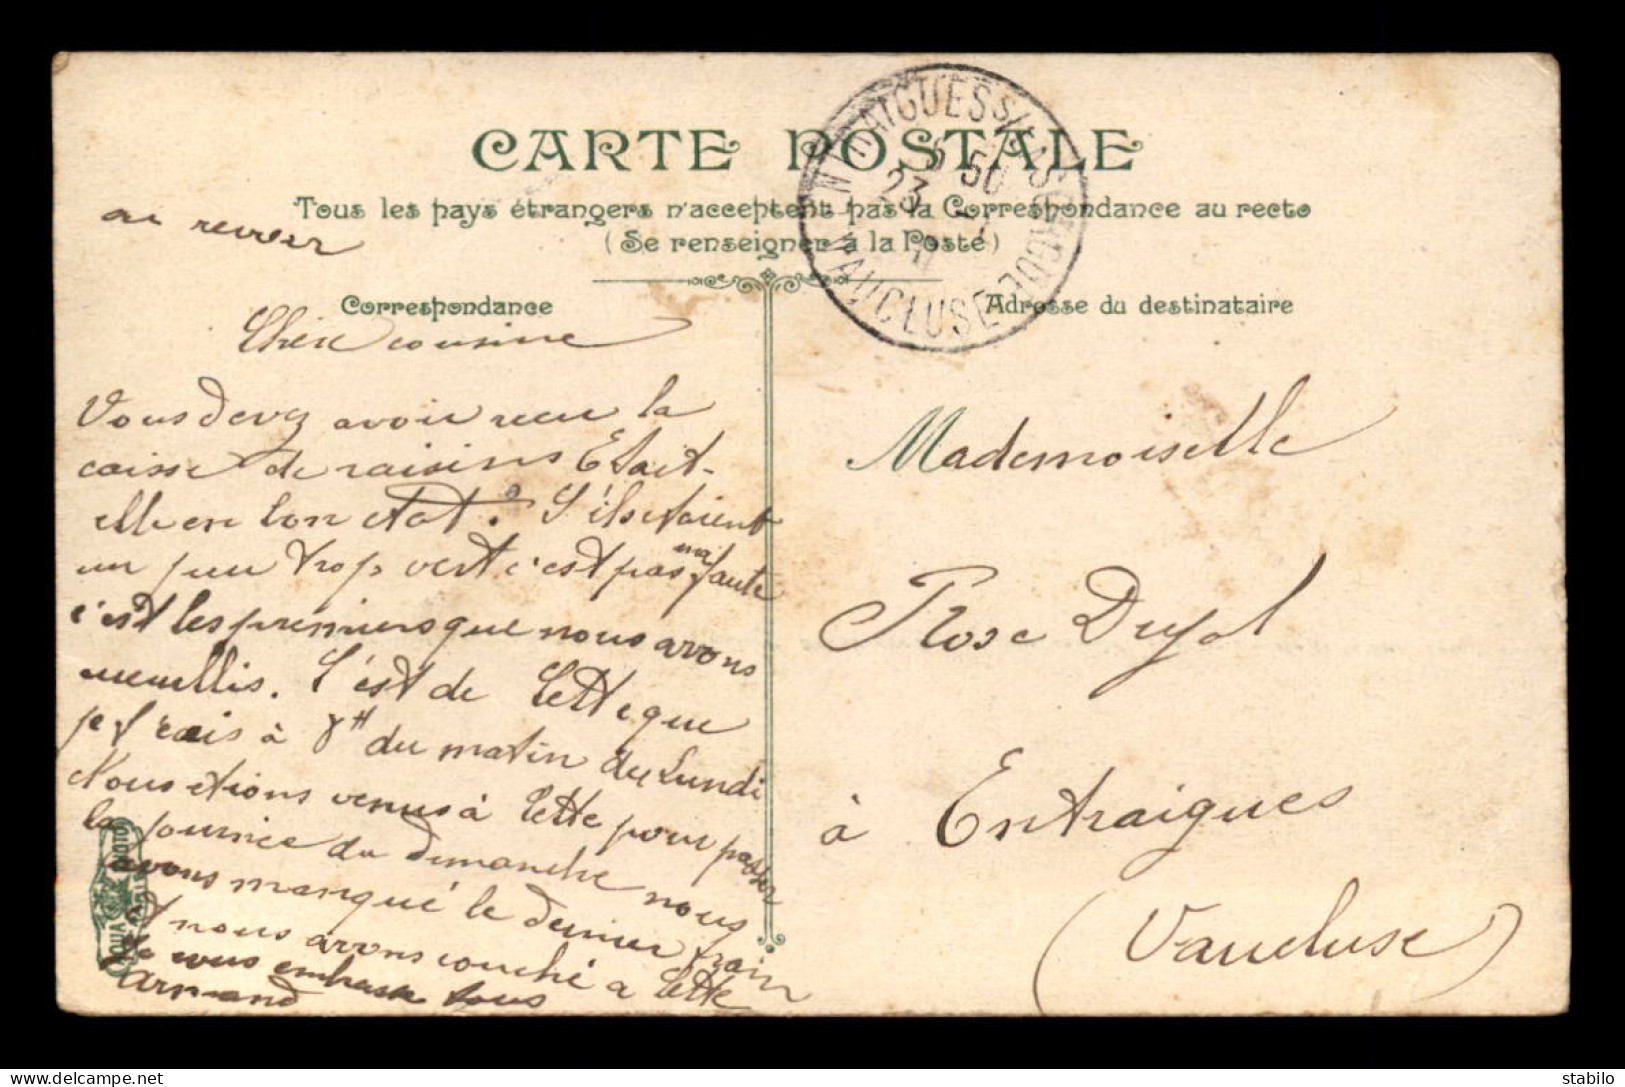 CARTE POSTALE
Tous les pays étrangers n'acceptent pas la Correspondance au recto
(Se renseigner à la Poste)
Correspondance
Adresse du destinataire
VAUCLUSE
23
au revoir
Chère cousine
Vous devez avoir recu la
caisse de raisins Etait-
elle en bon etat. S'ils etaient
un peu trop vert c'est pas ma faute
c'est les premiers que nous avons
cueuillis. C'est de Cette que
je t'ecris à 8H du matin du Lundi
Nous etions venus à Cette pour passer
la journée du dimanche nous
avons manqué le dernier train
et nous avons couché a Cette
Je vous embrasse tous
Armand
Mademoiselle
Rose Dujol
à Entraigues
(Vaucluse)
stabilo